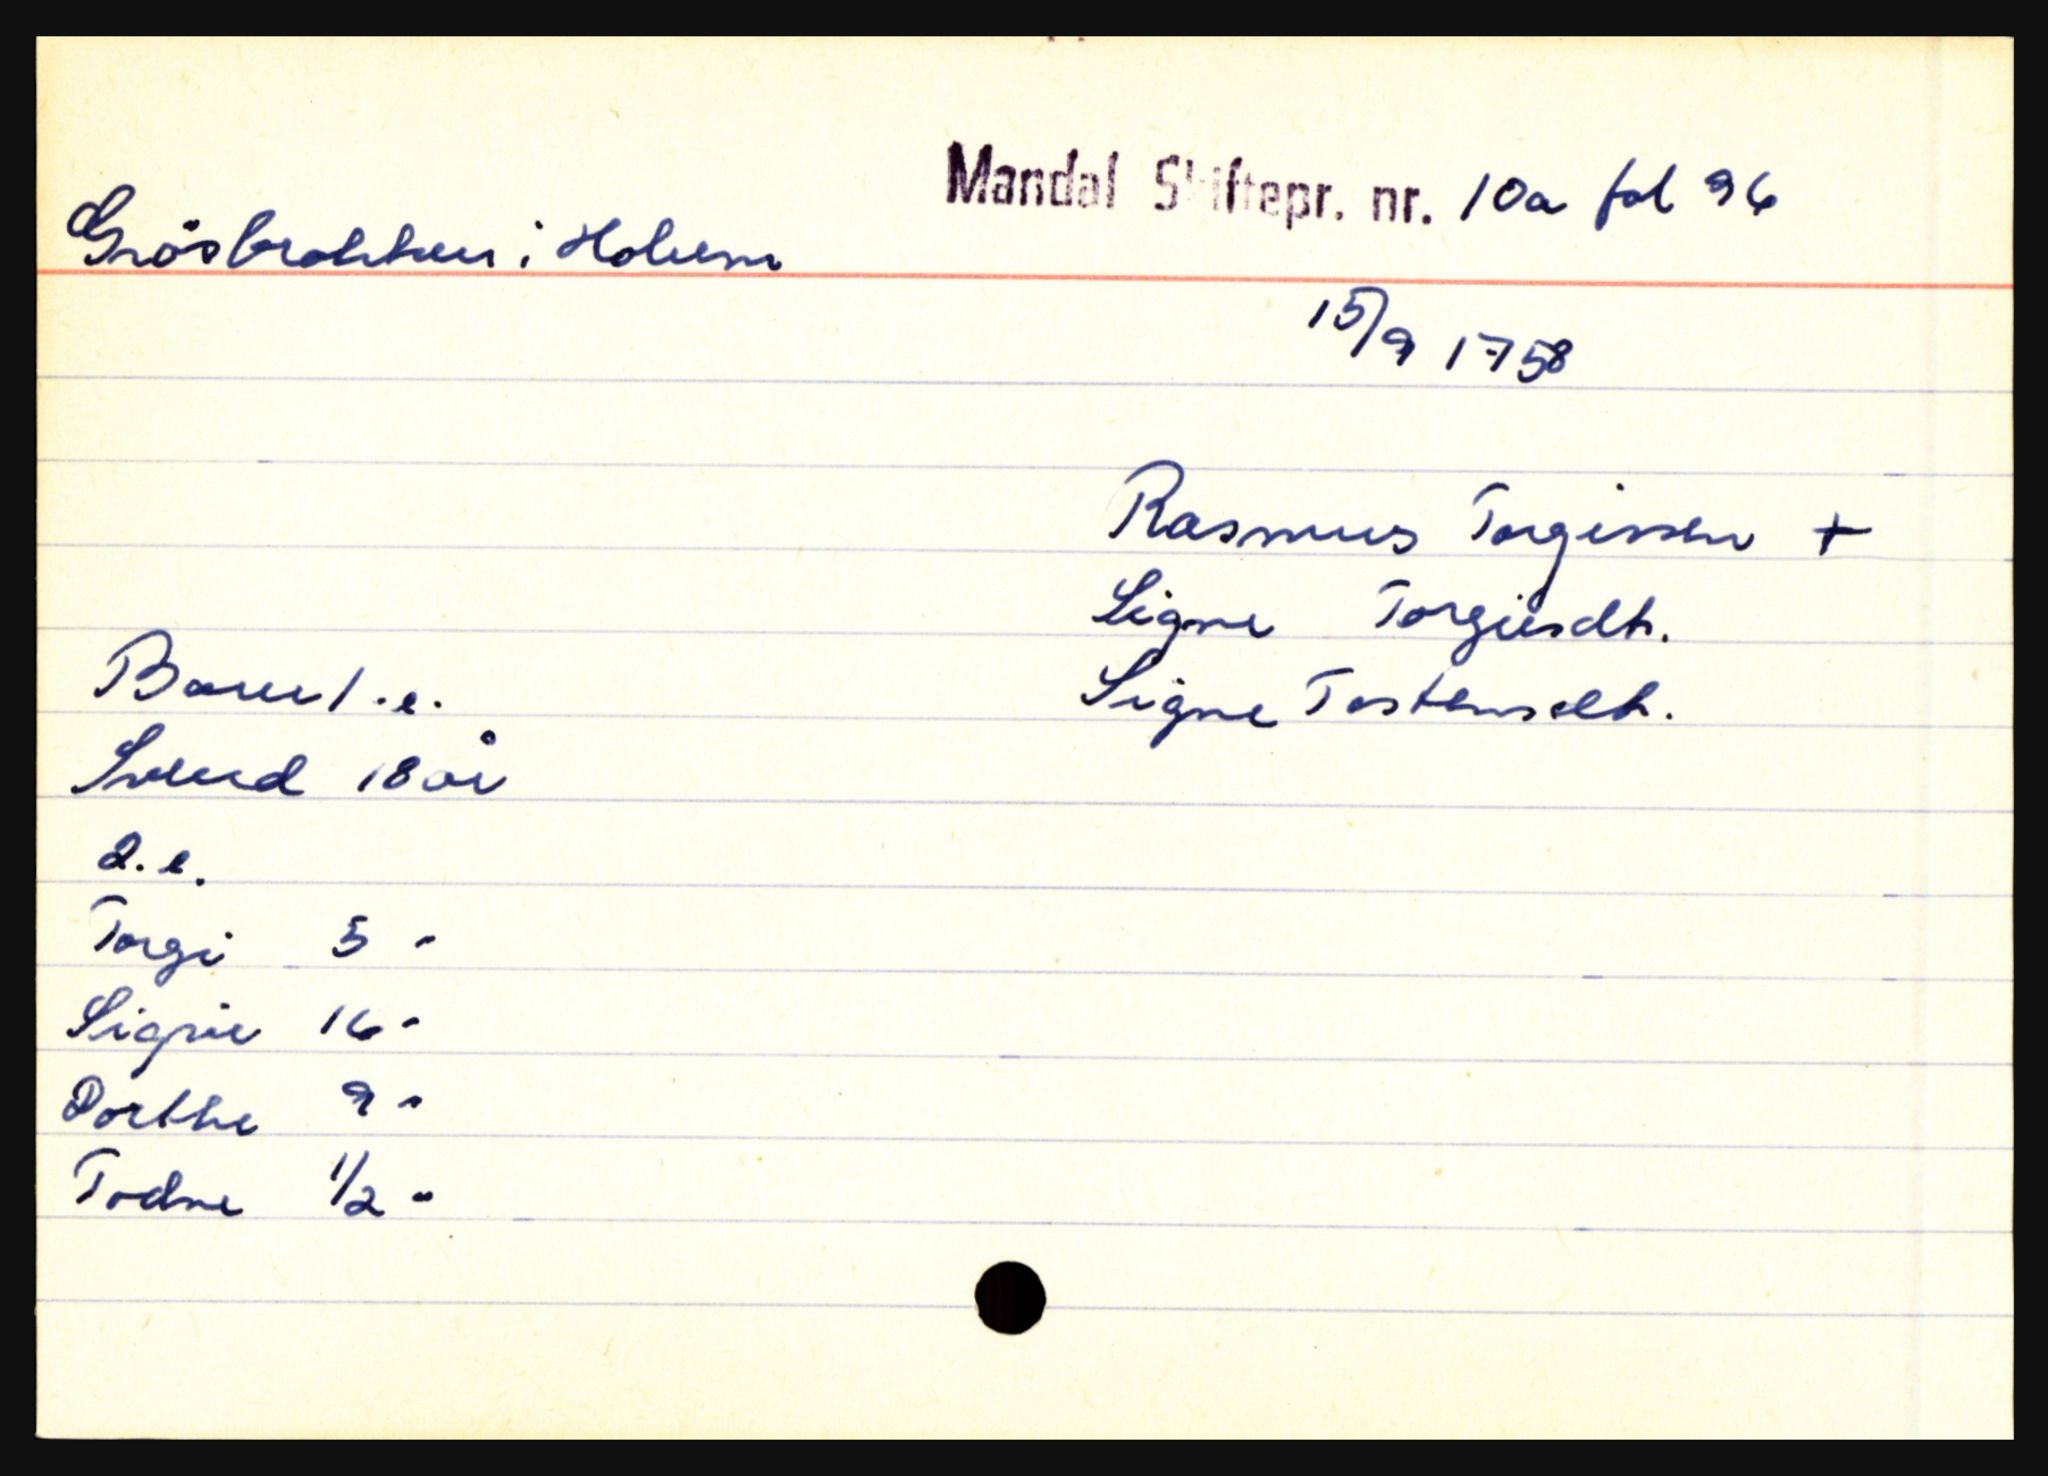 Mandal Skiftepr. nr. 10a fol 96
Grösbrokken i Holum
15/9 1758
Rasmus Torgissen +
Signe Torgiusdtr.
Signe Tostensdtr.
Barn 1.e.
Svend 18 år
2.e.
Torgi 5 "
Signe 16 "
Dorthe 9 "
Todne 1/2 "